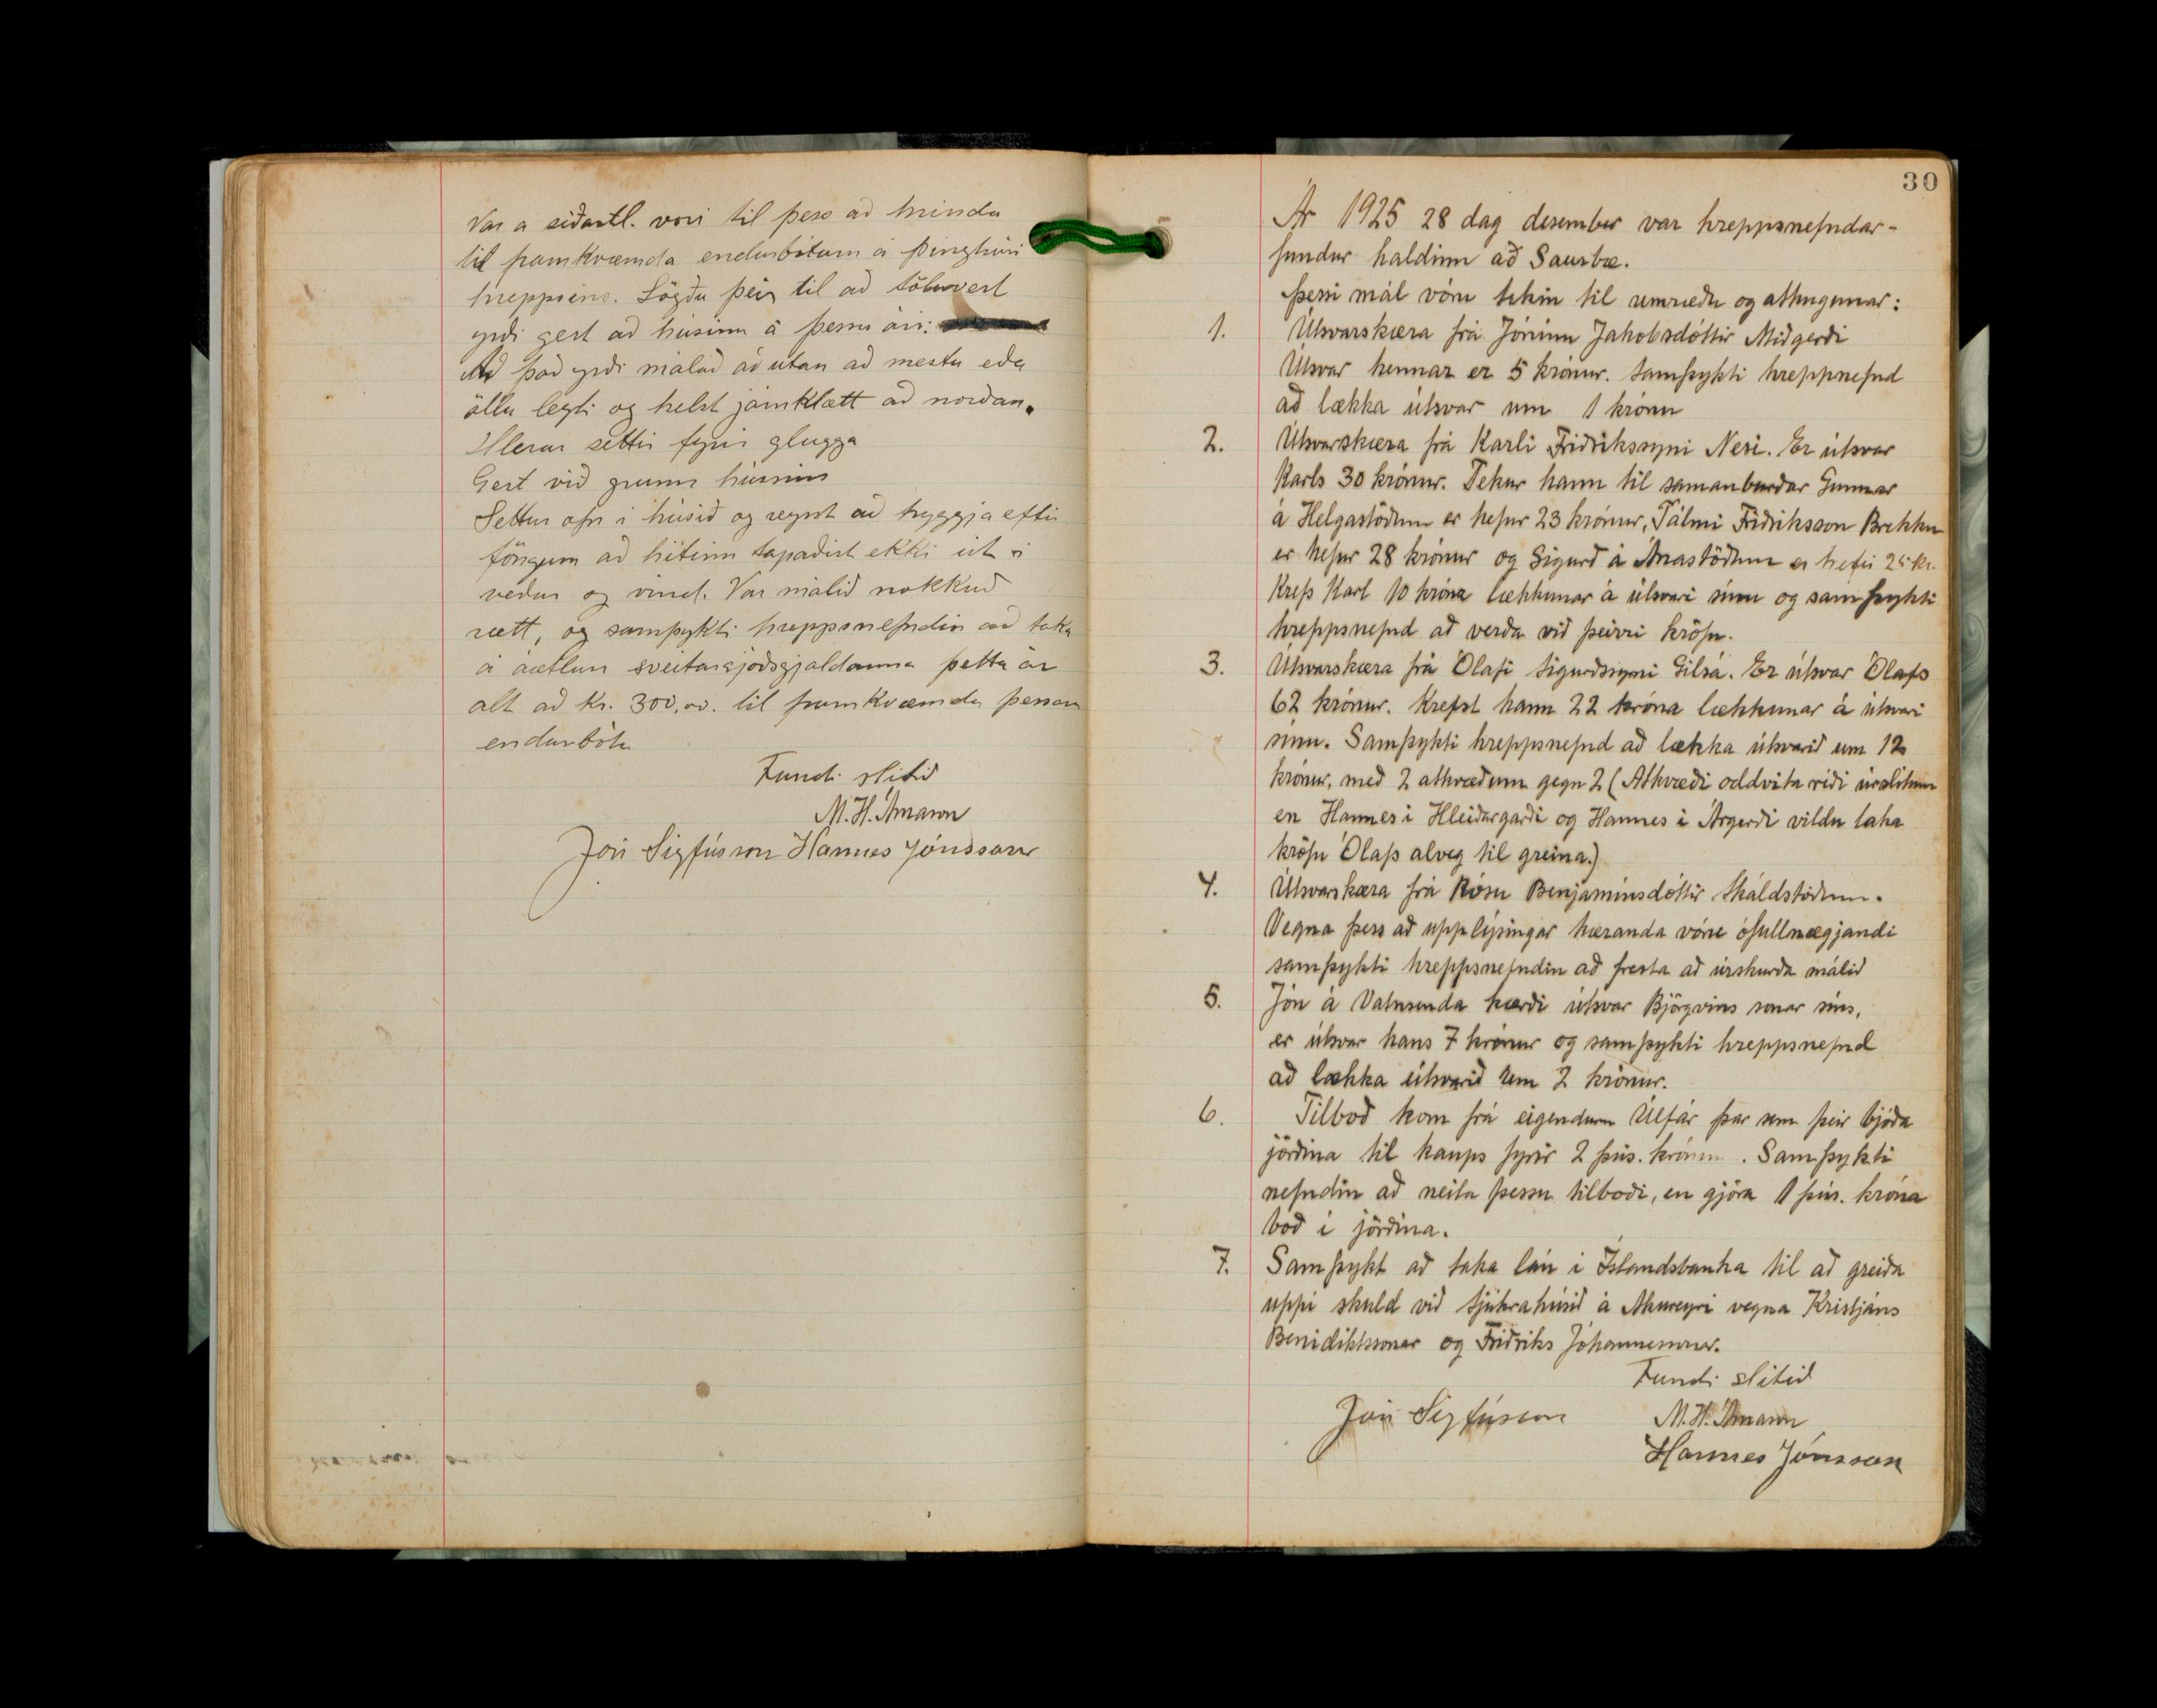 var á síðastl. vori til þess að hrinda
til framkvæmda endurbótum á þinghúsi
hreppsins. Lögðu þeir til að töluvert
yrði gert að húsinu á þessu ári:
Að það yrði málað að utan að mestu eða
öllu leyti og helst járnklætt að norðan.
Hlerar settir fyrir glugga
Gert við grunn hússins
Settur ofn í húsið og reynt að tryggja eftir
föngum að hitinn tapaðist ekki út í
veður og vind. Var málið nokkuð
rætt, og samþykti hreppsnefndin að taka
á áætlun sveitarsjóðsgjaldanna þetta ár
alt að kr. 300,00. til framkvæmda þessara
endurbóta
Fundi slitið
M. H. Árnason
Jón Sigfússon Hannes Jónsson
30
Ár 1925 28 dag desember var hreppsnefndar-
fundur haldinn að Saurbæ.
Þessi mál vóru tekin til umræðu og athugunar:
1. Útsvarskæra frá Jónínu Jakobsdóttir Miðgerði
Útsvar hennar er 5 krónur. Samþykti hreppnefnd
að lækka útsvar um 1 krónu
2. Útsvarskæra frá Karli Friðrikssyni Nesi. Er útsvar
Karls 30 krónur. Tekur hann til samanburðar Gunnar
á Helgastöðum er hefur 23 krónur, Pálmi Friðriksson Brekku
er hefur 28 krónur og Sigurð á Arnastöðum er hefir 25 kr.
Krefs Karl 10 króna lækkunar á útsvari sínu og samþykti
hreppsnefnd að verða við þeirri kröfu.
3. Útsvarskæra frá Ólafi Sigurðssyni Gilsá. Er útsvar Ólafs
62 krónur. Krefst hann 22 króna lækkunar á útsvari
sínu. Samþykti hreppsnefnd að lækka útsvarið um 12
krónur, með 2 atkvæðum gegn 2 (Atkvæði oddvita réði úrslitum
en Hannes í Hleiðargarði og Hannes í Árgerði vildu taka
kröfu Ólafs alveg til greina.)
4. Útsvarskæra frá Rósu Benjamínsdóttir Skáldstöðum.
Vegna þess að upplýsingar kæranda vóru ófullnægjandi
samþykti hreppsnefndin að fresta að úrskurða málið
5. Jón á Vatnsenda kærði útsvar Björgvins sonar síns,
er útsvar hans 7 krónur og samþykti hreppsnefnd
að lækka útsvarið um 2 krónur.
6. Tilboð kom frá eigendum Úlfár þar sem þeir bjóða
jörðina til kaups fyrir 2 þús. krónur. Samþykti
nefndin að neita þessu tilboði, en gjöra 1 þús. króna
boð í jörðina.
7. Samþykt að taka lán í Íslandsbanka til að greiða
uppí skuld við Sjúkrahúsið á Akureyri vegna Kristjáns
Benidiktssonar og Friðriks Jóhannessonar.
Fundi slitið
Jón Sigfússon M. H. Árnason
Hannes Jónsson